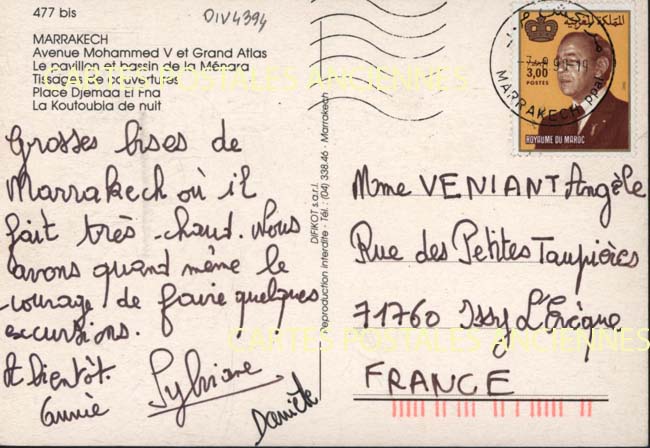 477 bis
DIV4394
MARRAKECH
Avenue Mohammed V et Grand Atlas
Le pavillon et bassin de la Ménara
Tissages et couvertures
Place Djemaa El Fna
La Koutoubia de nuit
CARTES POSTALES ANCIENNES
Grosses bises de
Marrakech où il
fait très chaud. Nous
avons quand même le
courage de faire quelques
excursions.
A bientôt.
Annie
Sylviane
Danièle
DIFIKOT s.a.r.l.
Reproduction interdite - Tél. : (04) 338.46 - Marrakech
المملكة المغربية
3,00
POSTES
ROYAUME DU MAROC
مراكش
MARRAKECH ppal
Mme VENIANT Angèle
Rue des Petites Taupières
71760 Issy L'Evêque
FRANCE
CARTES POSTALES ANCIENNES